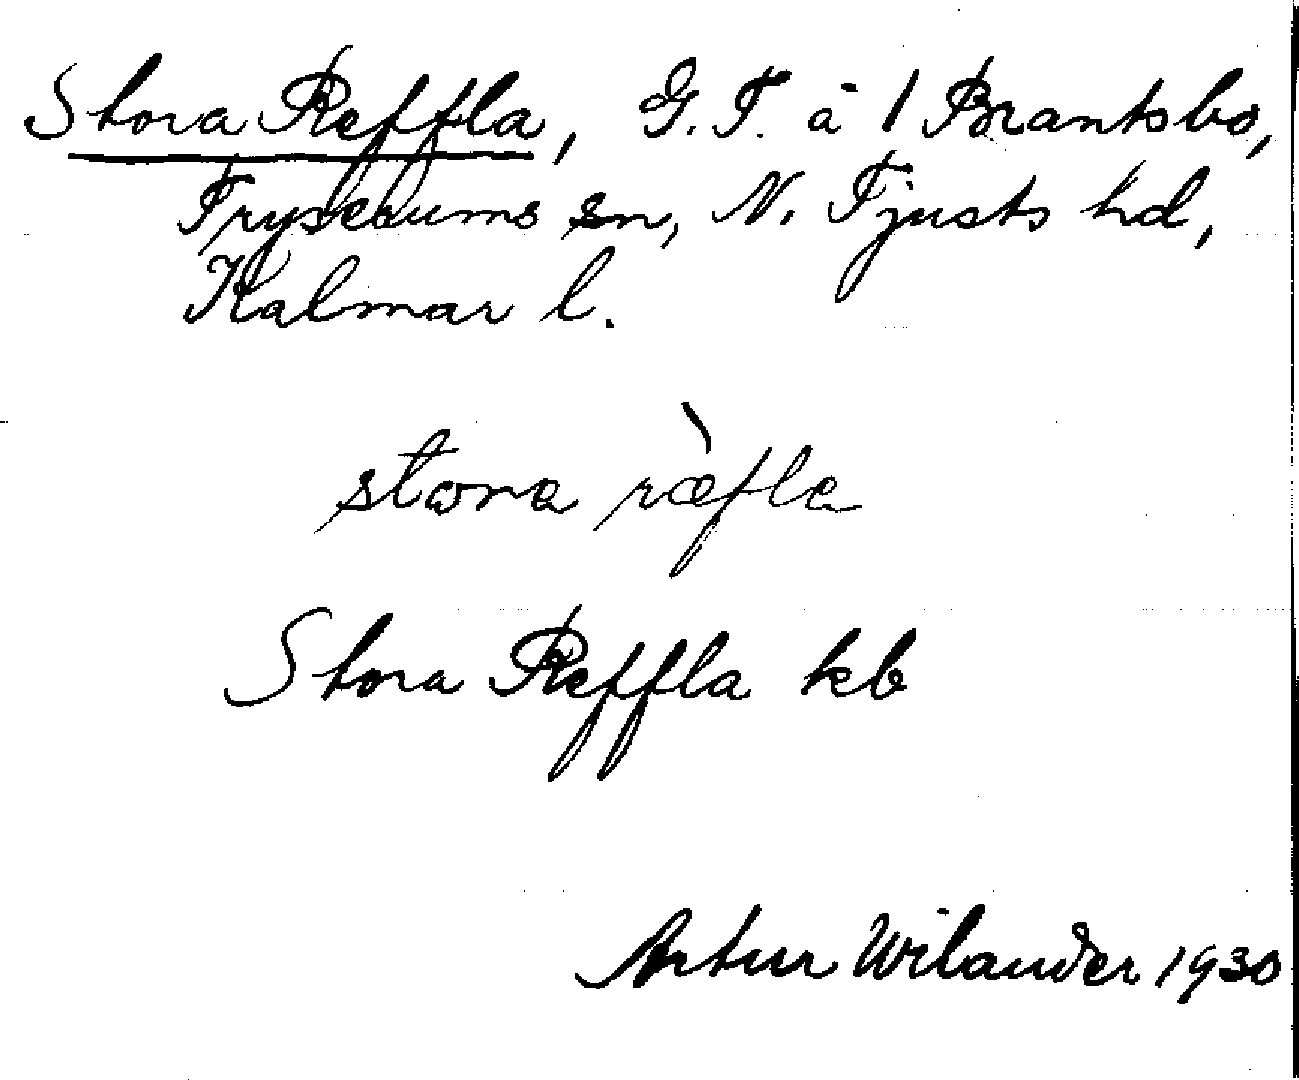 Stora Reffla, G. T. å 1 Brantsbo,
Tryserums sn, N. Tjusts hd,
Kalmar l.
stωra ræ̀fla
Stora Reffla kb
Artur Wilander 1930